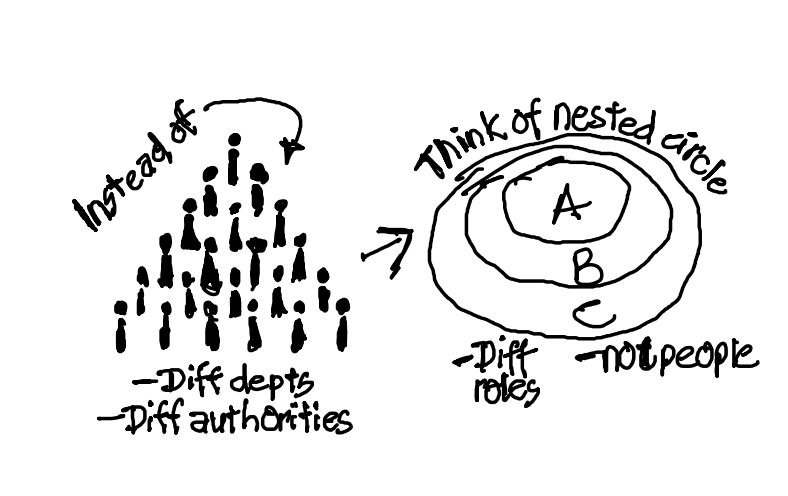 Instead of
- Diff depts
- Diff authorities
Think of nested circle
A
B
C
- Diff roles
- not people